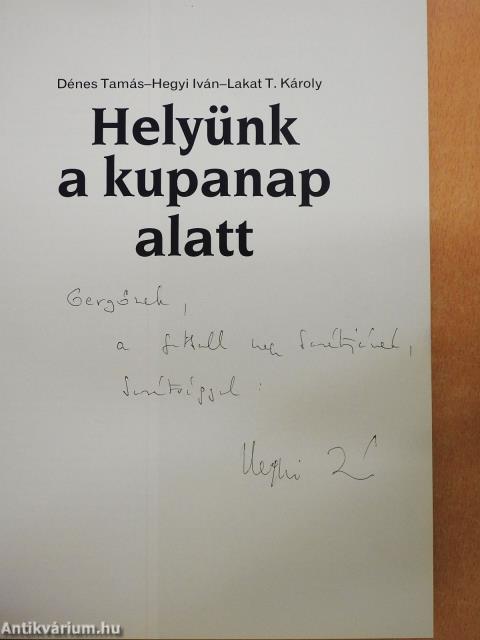 Dénes Tamás–Hegyi Iván–Lakat T. Károly
Helyünk
a kupanap
alatt
Gergőnek,
a futball nagy barátjának,
barátsággal:
Hegyi I
Antikvárium.hu